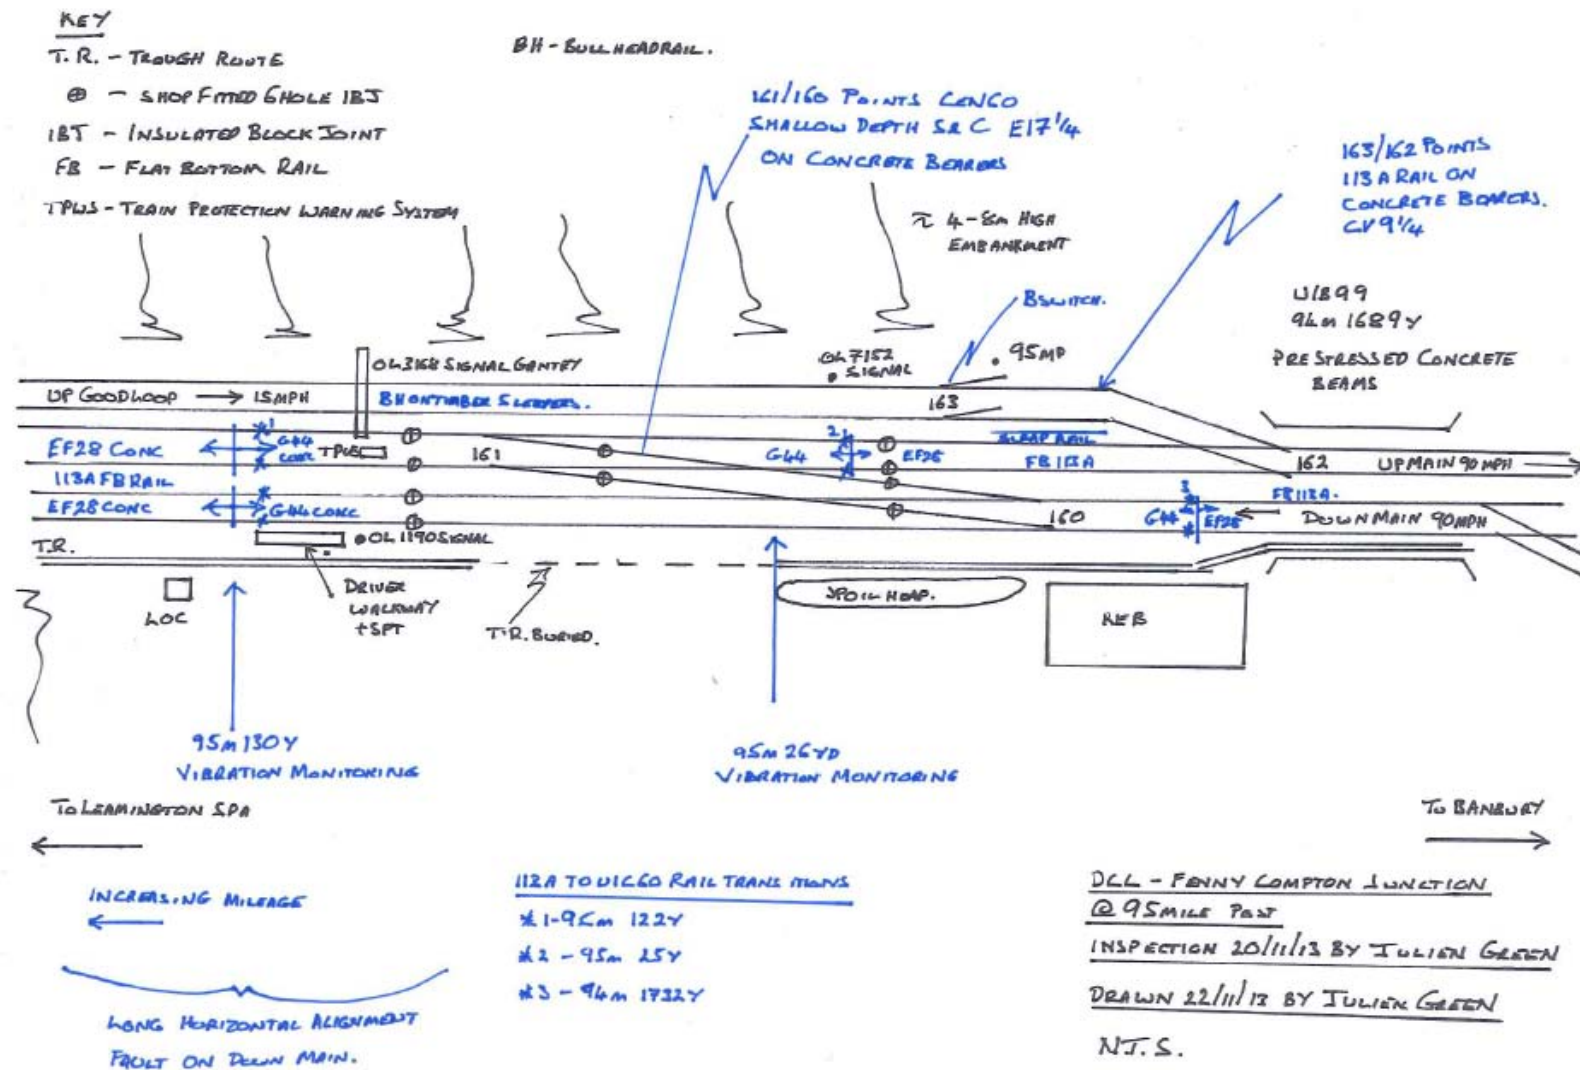 KEY
T.R. - TROUGH ROUTE
⊕ - SHOP FITTED 6HOLE IBJ
IBJ - INSULATED BLOCK JOINT
FB - FLAT BOTTOM RAIL
TPWS - TRAIN PROTECTION WARNING SYSTEM
BH - BULLHEADRAIL.
161/160 POINTS CEN60
SHALLOW DEPTH S&C E17 1/4
ON CONCRETE BEARERS
163/162 POINTS
113A RAIL ON
CONCRETE BEARERS.
CV 9 1/4
4-8m HIGH
EMBANKMENT
BSWITCH.
U/B99
94m 1689Y
PRESTRESSED CONCRETE
BEAMS
OL3168 SIGNAL GANTRY
OL7152
SIGNAL
95MP
UP GOODLOOP → 15MPH
BH ON TIMBER SLEEPERS.
163
EF28 CONC
*1
G44
CONC
TPWS
161
2
G44
EF28
FB113A
162
UPMAIN 90MPH
113A FB RAIL
EF28 CONC
G44 CONC
160
3
G44
EF28
FB113A.
DOWNMAIN 90MPH
T.R.
OL1190 SIGNAL
LOC
DRIVER
WALKWAY
+SPT
T.R. BURIED.
SPOIL HEAP.
REB
95m 130Y
VIBRATION MONITORING
95m 26YD
VIBRATION MONITORING
TO LEAMINGTON SPA
TO BANBURY
INCREASING MILEAGE
LONG HORIZONTAL ALIGNMENT
FAULT ON DOWN MAIN.
113A TO UIC60 RAIL TRANSITIONS
*1-95m 122Y
*2 - 95m 25Y
*3 - 94m 1732Y
DCL - FENNY COMPTON JUNCTION
@ 95MILE POST
INSPECTION 20/11/13 BY JULIEN GREEN
DRAWN 22/11/13 BY JULIEN GREEN
N.T.S.